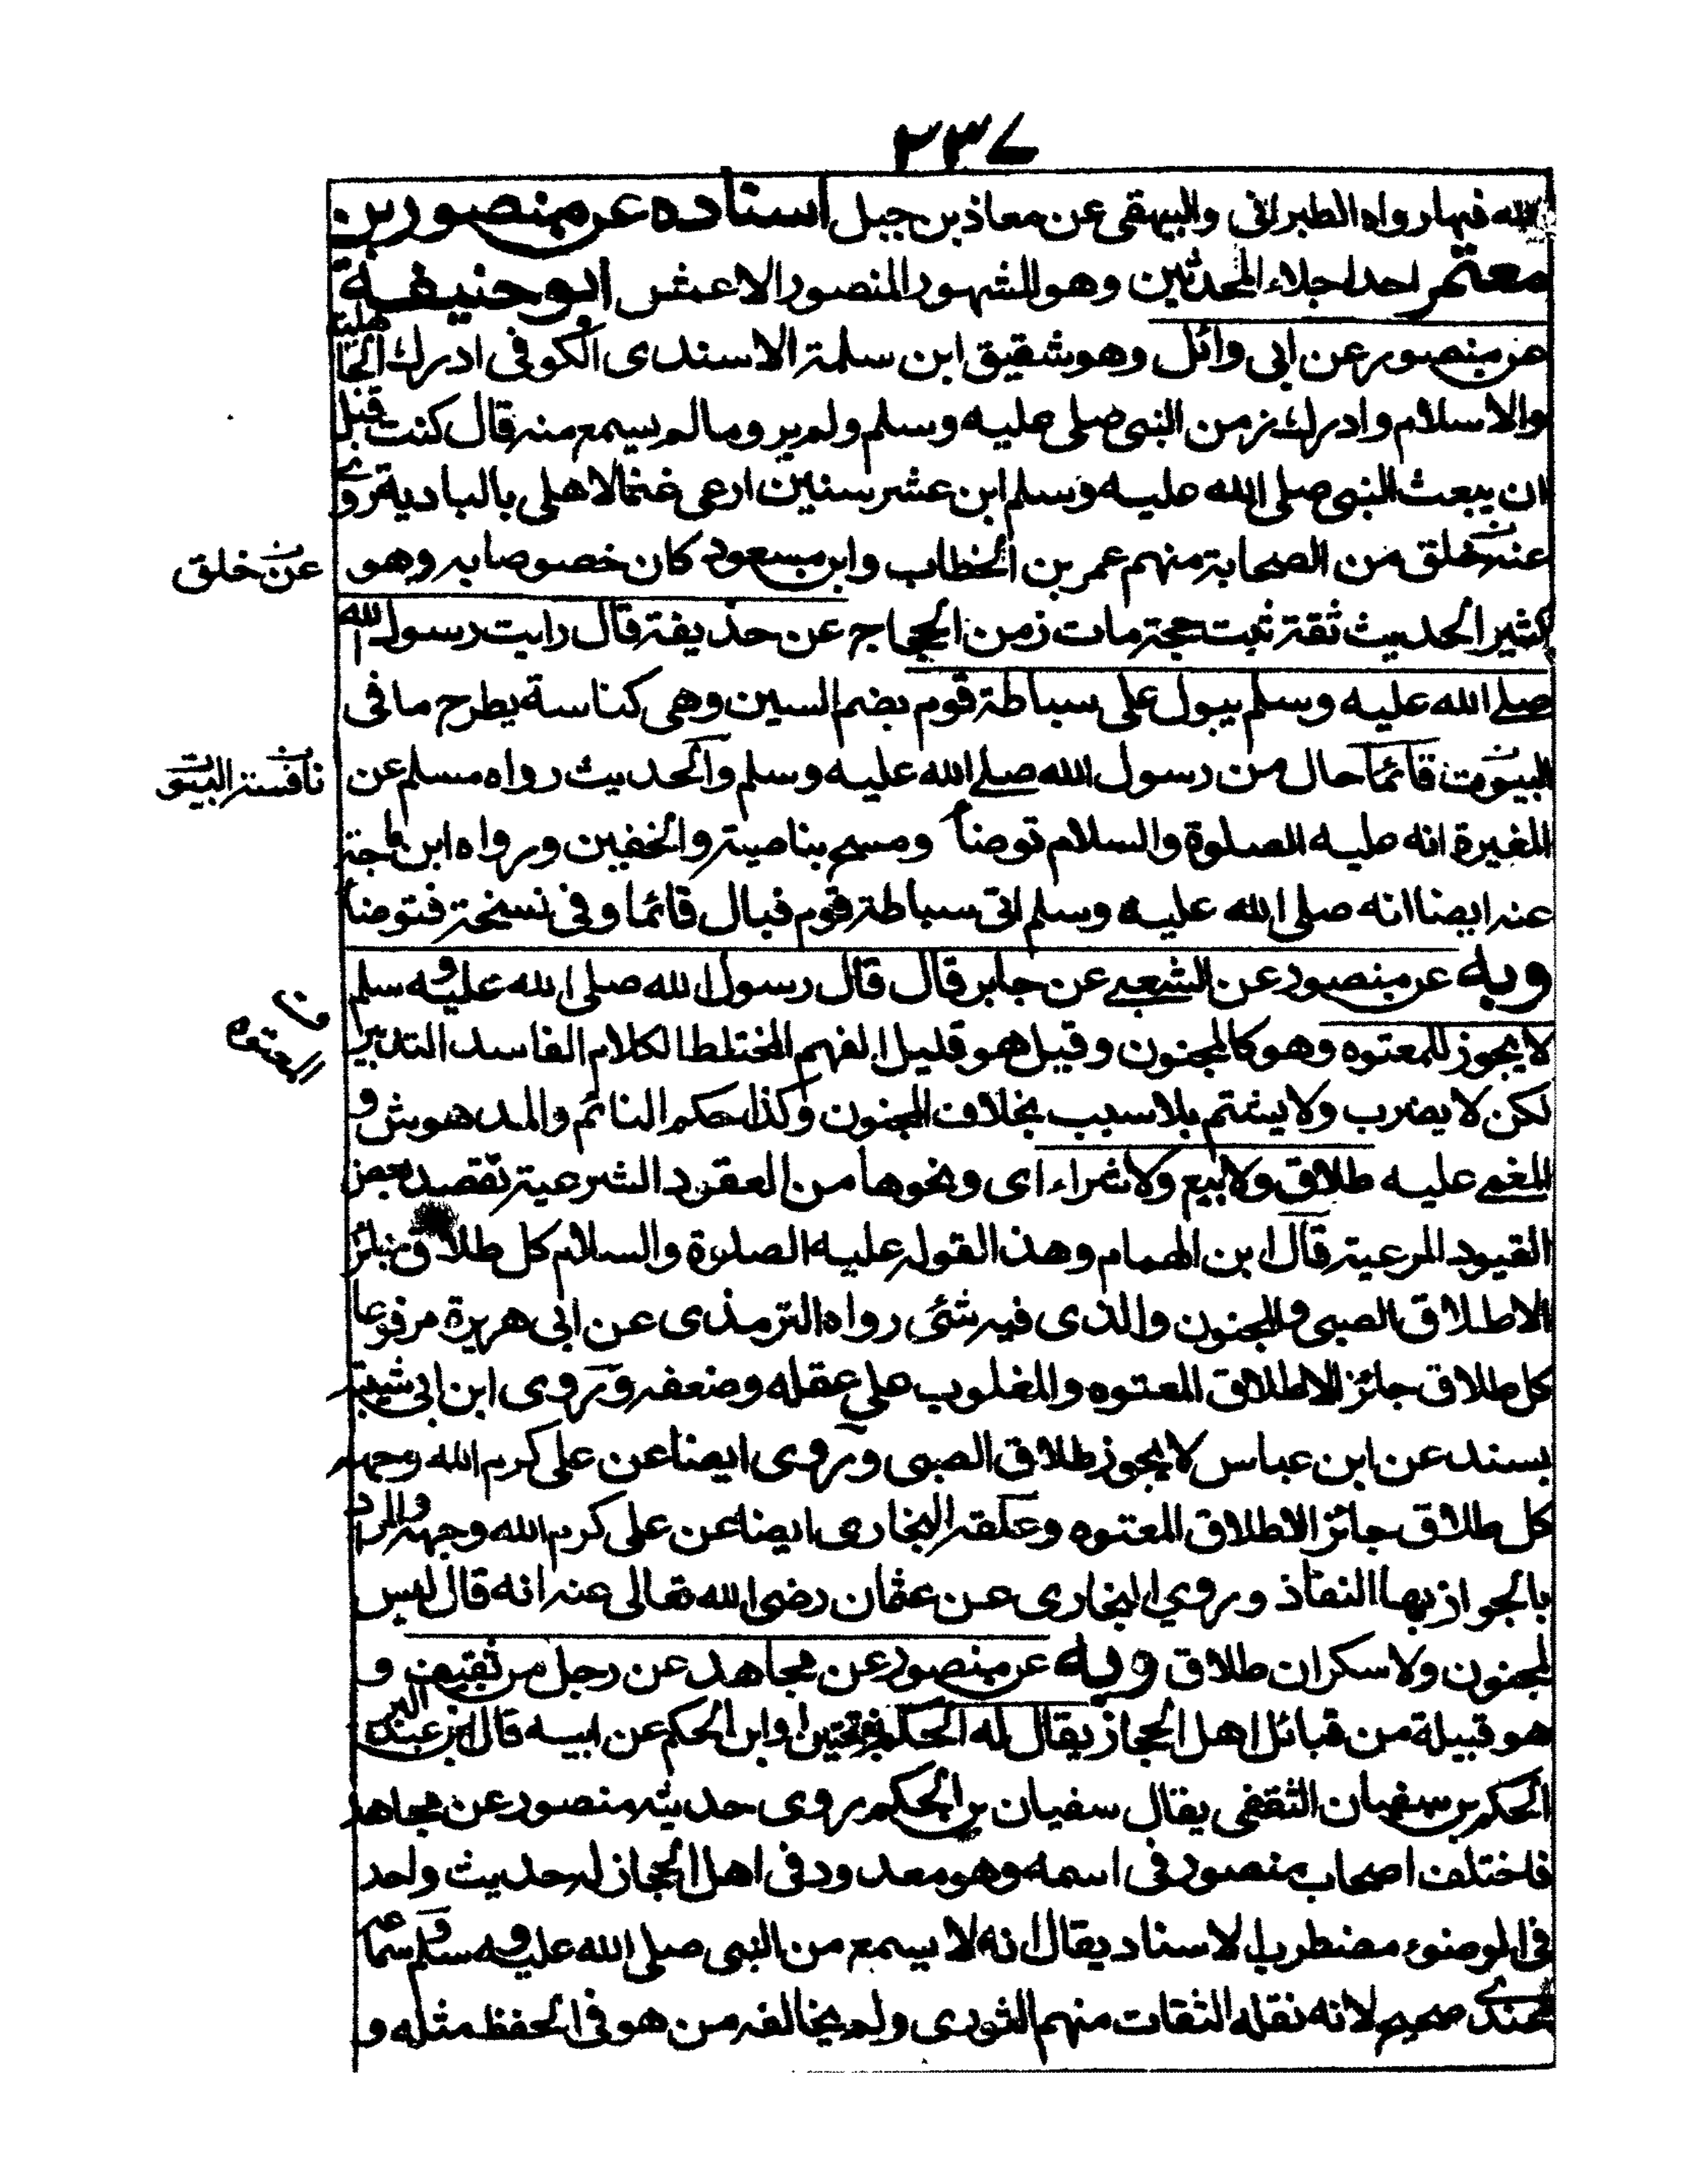 ٢٣٧
لله فيها رواه الطبرانى والبيهقى عن معاذ بن جبل اسناده عن منصور بن
معتمر احد اجلاء المحدثين وهو المشهور المنصور الاعمش ابو حنيفة
عن منصور عن ابى وائل وهو شقيق ابن سلمة الاسندى الكوفى ادرك الجاهلية
والاسلام وادرك زمن النبى صلى عليه وسلم ولم ير وما لم يسمع منه قال كنت قبل
ان يبعث النبى صلى الله عليه وسلم ابن عشر سنين ارعى غنما لاهلى بالبادية روى
عنه خلق من الصحابة منهم عمر بن الخطاب وابن مسعود كان خصوصا به وهو
عن خلق
كثير الحديث ثقة ثبت حجة مات زمن الحجاج عن حذيفة قال رايت رسول الله
صلى الله عليه وسلم يبول على سباطة قوم بضم السين وهى كناسة يطرح ما فى
البيوت قائما حال من رسول الله صلى الله عليه وسلم والحديث رواه مسلم عن
المغيرة انه عليه الصلوة والسلام توضأ ومسح بناصيته والخفين ورواه ابن ماجة
عنه ايضا انه صلى الله عليه وسلم اتى سباطة قوم فبال قائما وفى نسخة فتوضأ
وبه عن منصور عن الشعبى عن جابر قال قال رسول الله صلى الله عليه وسلم
لا يجوز للمعتوه وهو كالمجنون وقيل هو قليل الفهم المختلط الكلام الفاسد التدبير
المعتوه
لكن لا يضرب ولا يشتم بلا سبب بخلاف المجنون وكذا حكم النائم والمدهوش و
المغمى عليه طلاق ولا بيع ولا شراء اى ونحوها من العقود الشرعية تقصد بعض
القيود المرعية قال ابن الهمام وهذا لقوله عليه الصلوة والسلام كل طلاق جائز
الا طلاق الصبى والمجنون والذى فيه شئى رواه الترمذى عن ابى هريرة مرفوعا
كل طلاق جائز الا طلاق المعتوه والمغلوب على عقله وضعفه وروى ابن ابى شيبة
بسند عن ابن عباس لا يجوز طلاق الصبى وروى ايضا عن على كرم الله وجهه
كل طلاق جائز الا طلاق المعتوه وعلقه البخارى ايضا عن على كرم الله وجهه والمراد
بالجواز بها النفاذ وروى البخارى عن عثمان رضى الله تعالى عنه انه قال ليس
لمجنون ولا سكران طلاق وبه عن منصور عن مجاهد عن رجل من ثقيف و
هو قبيلة من قبائل اهل الحجاز يقال له الحكم بفتحتين او ابن الحكم عن ابيه قال ابن عبد البر
الحكم بن سفيان الثقفى يقال سفيان بن الحكم روى حديثه منصور عن مجاهد
فاختلف اصحاب منصور فى اسمه وهو معدود فى اهل الحجاز له حديث واحد
فى الوضوء مضطرب الاسناد يقال انه لا يسمع من النبى صلى الله عليه وسلم سماعه
عندى صحيح لانه نقله الثقات منهم الثورى ولم يخالفه من هو فى الحفظ مثله و